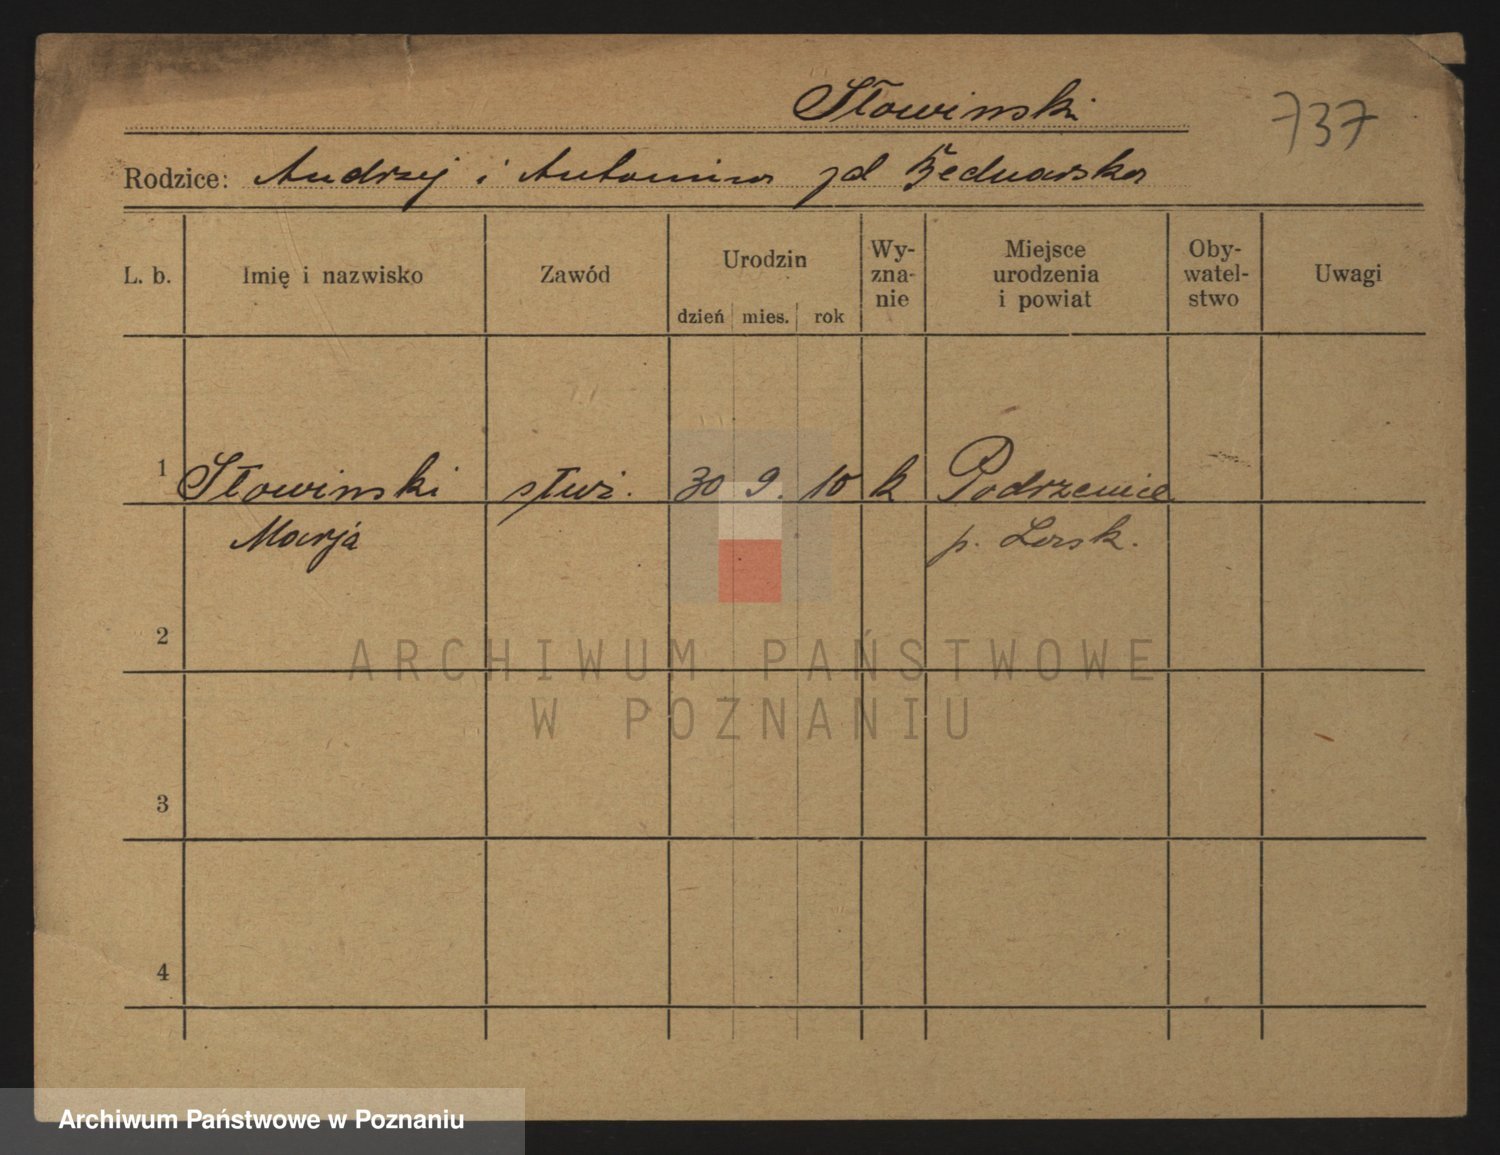 Słowinski
737
Rodzice: Andrzej i Antonina zd Bednarska
L. b.
Imię i nazwisko
Zawód
Urodzin
dzień mies. rok
Wy-
zna-
nie
Miejsce
urodzenia
i powiat
Oby-
watel-
stwo
Uwagi
1 Słowinski służ. 30 9. 10 k Podrzemice
Marja p. Lesk.
2
3
4
ARCHIWUM PAŃSTWOWE
W POZNANIU
Archiwum Państwowe w Poznaniu